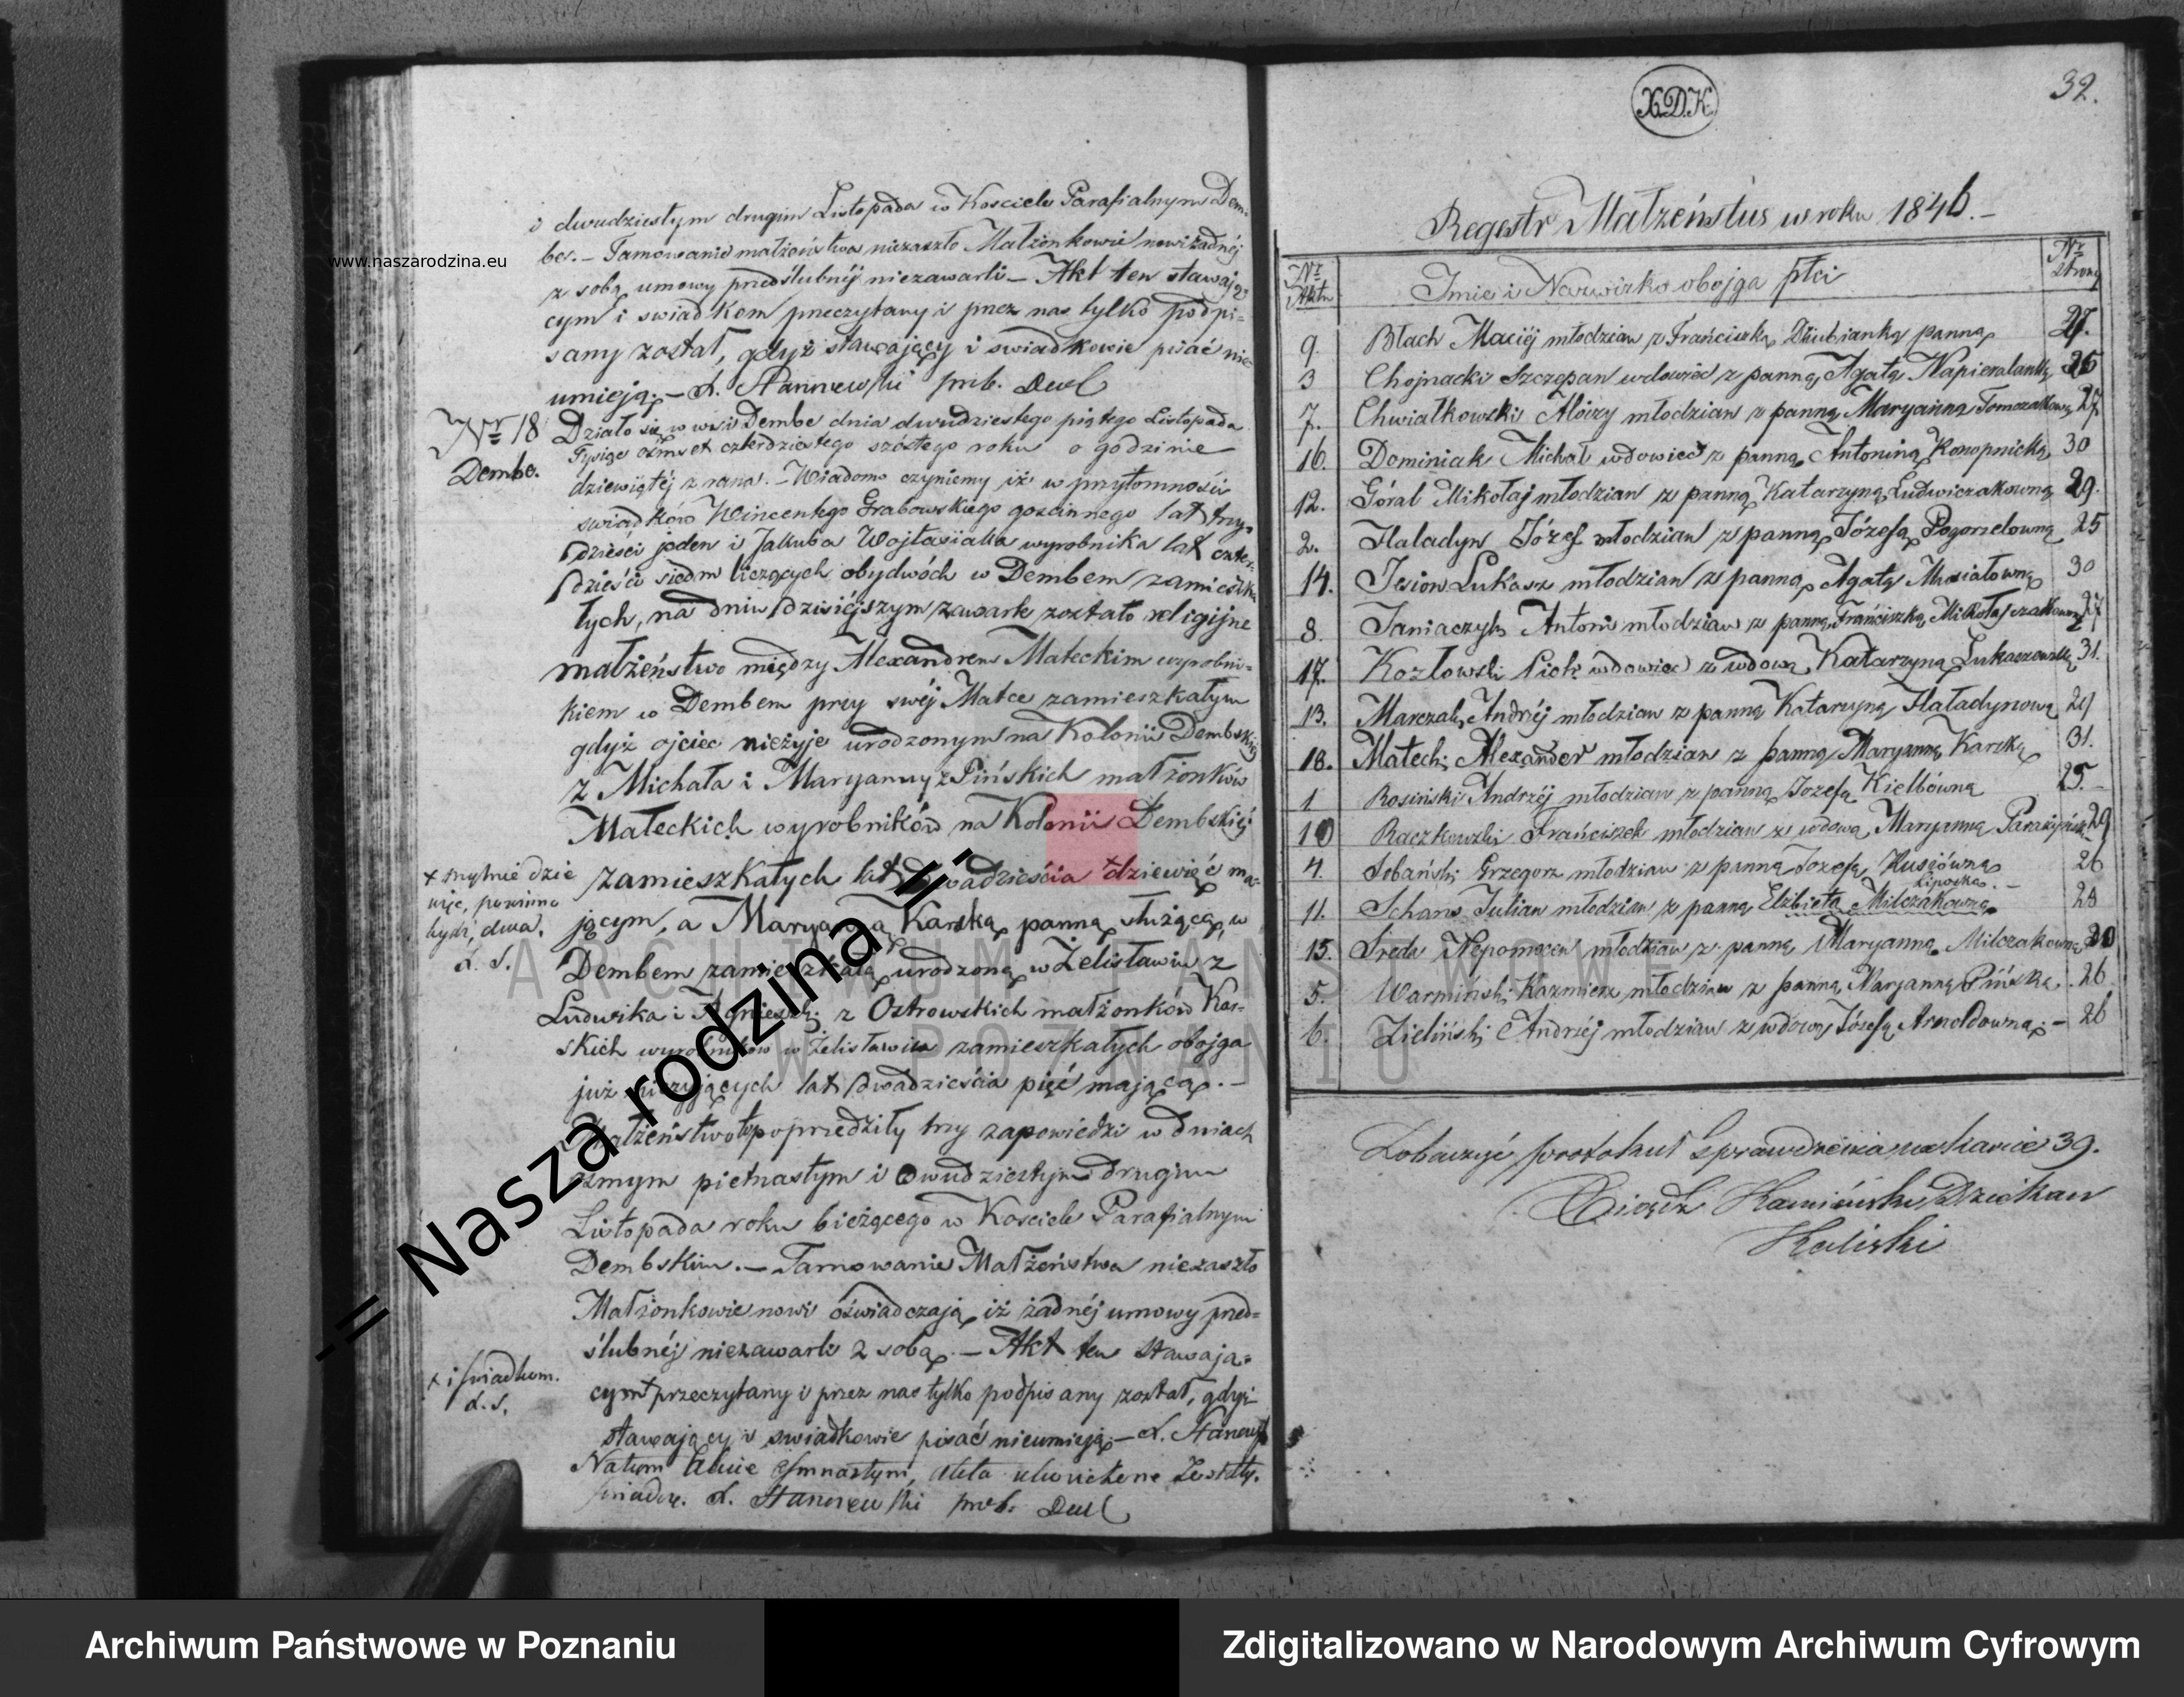 i dwudziestym drugim Listopada w Kosciele Parafialnym Dem-
be. – Tamowanie małżeństwa niezaszło Małżonkowie nowi żadnéj
z sobą umowy przedślubnéj niezawarli – Akt ten stawają
cym i swiadkom przeczytany i przez nas tylko podpi=
sany został, gdyż stawający i swiadkowie pisać nie
umieją. –
Nr 18
Dembe.
Działo się w wsi Dembe dnia dwudziestego piątego Listopada
Tysiąc ośmset czterdziestego szóstego roku o godzinie
dziewiątéj z rana. – Wiadomo czyniemy iż w przytomności
swiadków Wincentego Grabowskiego goscinnego lat trzy-
dzieści jeden i Jakuba Wojtasiaka wyrobnika lat czter-
dzieści siedm liczących obydwóch w Dembem zamieszka
łych, na dniu dzisiéjszym zawarte zostało religijne
małżeństwo między Alexandrem Małeckim wyrobni=
kiem w Dembem przy swéj Matce zamieszkałym
gdyż ojciec nieżyje urodzonym na Kolonii Dembskiéj
z Michała i Maryanny z Pińskich małżonków
Małeckich wyrobników na Kolonii Dembskiéj
zamieszkałych lat dwadzieścia +dziewięć ma=
jącym, a Maryanną Karską panną służącą w
Dembem zamieszkałą, urodzoną w Żelisławiu z
Ludwika i Agnieszki z Ostrowskich małżonków Kar=
skich wyrobników w Żelisławiu zamieszkałych obojga
już nieżyjących lat dwadzieścia pięć mającą. –
Małżeństwo to poprzedziły trzy zapowiedzi w dniach
ósmym pietnastym i dwudziestym drugim
Listopada roku bieżącego w Kosciele Parafialnym
Dembskim. – Tamowanie Małżeństwa niezaszło
Małżonkowie nowi oświadczają, iż żadnéj umowy przed=
ślubnéj niezawarli z sobą. – Akt ten stawają=
cym+ przeczytany i przez nas tylko podpisany został, gdyż
stawający i swiadkowie pisać nieumieją. –
+ mylnie dzie
więć, powinno
być, dwa.
+ i swiadkom.
X.D.K.
32.
Regestr Małżeństw w roku 1846. –
Nr Aktu
Imie i Nazwisko obojga płci
Nr strony
9. Błach Maciéj młodzian z Franciszką Dziubianką panną 27.
3 Chojnacki Szczepan wdowiec z panną Agatą Napieralanką 25
7. Chwiałkowski Aloizy młodzian z panną Maryanną Tomczakowną 27
16. Dominiak Michał wdowiec z panną Antoniną Konopnicką 30
12. Góral Mikołaj młodzian z panną Katarzyną Ludwiczakowną 29.
2. Haladyn Józef młodzian z panną Józefą Pogorzelowną 25
14. Jesion Łukasz młodzian z panną Agatą Musiałowną 30
8. Janiaczyk Antoni młodzian z panną Franciszką Mikołajczakowną 27
17. Kozłowski Piotr wdowiec z wdową Katarzyną Łukaszewską 31.
13. Marczak Andréj młodzian z panną Katarzyną Haładynową 29
18. Małecki Alexander młodzian z panną Maryanną Karską 31.
1 Rosiński Andrzéj młodzian z panną Jozefą Kielbówną 25. –
10 Raczkowski Franciszek młodzian z wdową Maryanną 29
4. Sobański Grzegorz młodzian z panną Jozefą 26
Liposka. –
11. Schans Julian młodzian z panną Elzbietą Milczakowną 29
15. Sreda Nepomocen młodzian z panną Maryanną Milczakowną 30
5. Warmiński Kazmierz młodzian z panną Maryanną Pińską. 26
6. Zieliński Andrzéj młodzian z wdową Józefą Arnoldowną. – 26
Zobaczyć protokuł sprawdzenia na karcie 39.
Xiądz Kamiński Dziekan
Kaliski
www.naszarodzina.eu
-= Nasza rodzina =-
ARCHIWUM PAŃSTWOWE
W POZNANIU
Archiwum Państwowe w Poznaniu
Zdigitalizowano w Narodowym Archiwum Cyfrowym